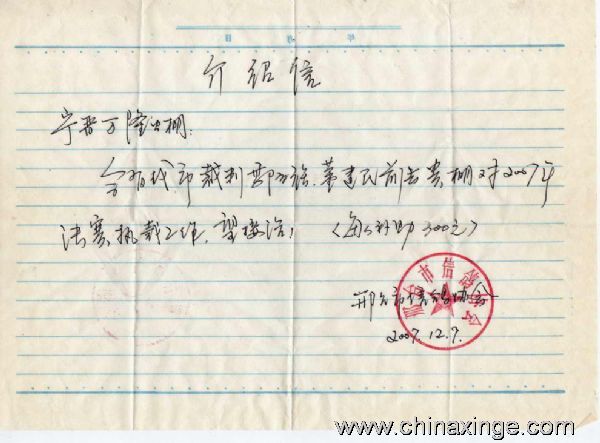 介绍信
宁晋万隆公棚:
今有我市裁判 董建民前去贵棚对2007年
决赛执裁工作,望接洽! (每人补助300元)
邢台市信鸽协会
邢台市信鸽协会
2007.12.9.
www.chinaxinge.com